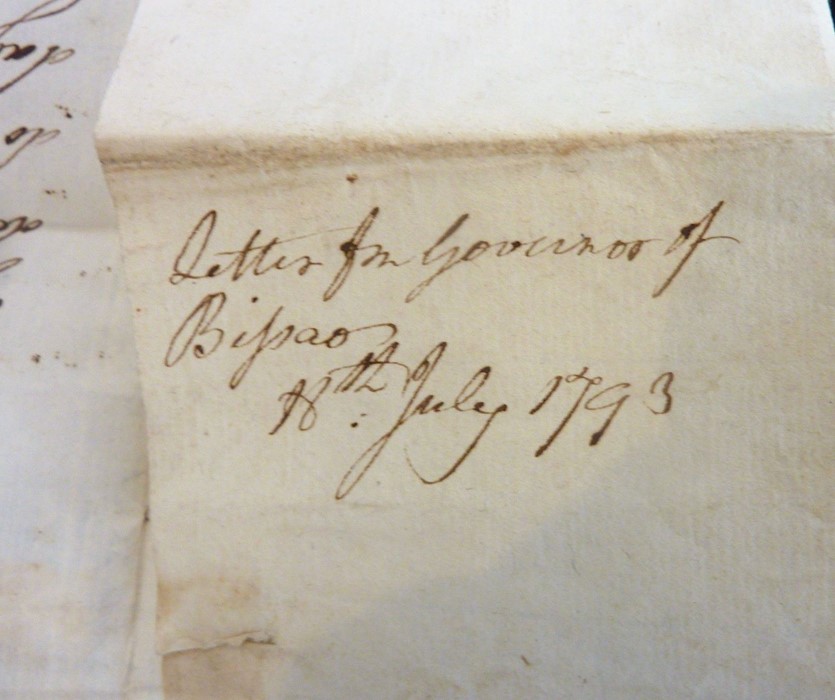 Letter fm Governor of
Bissao
18th July 1793